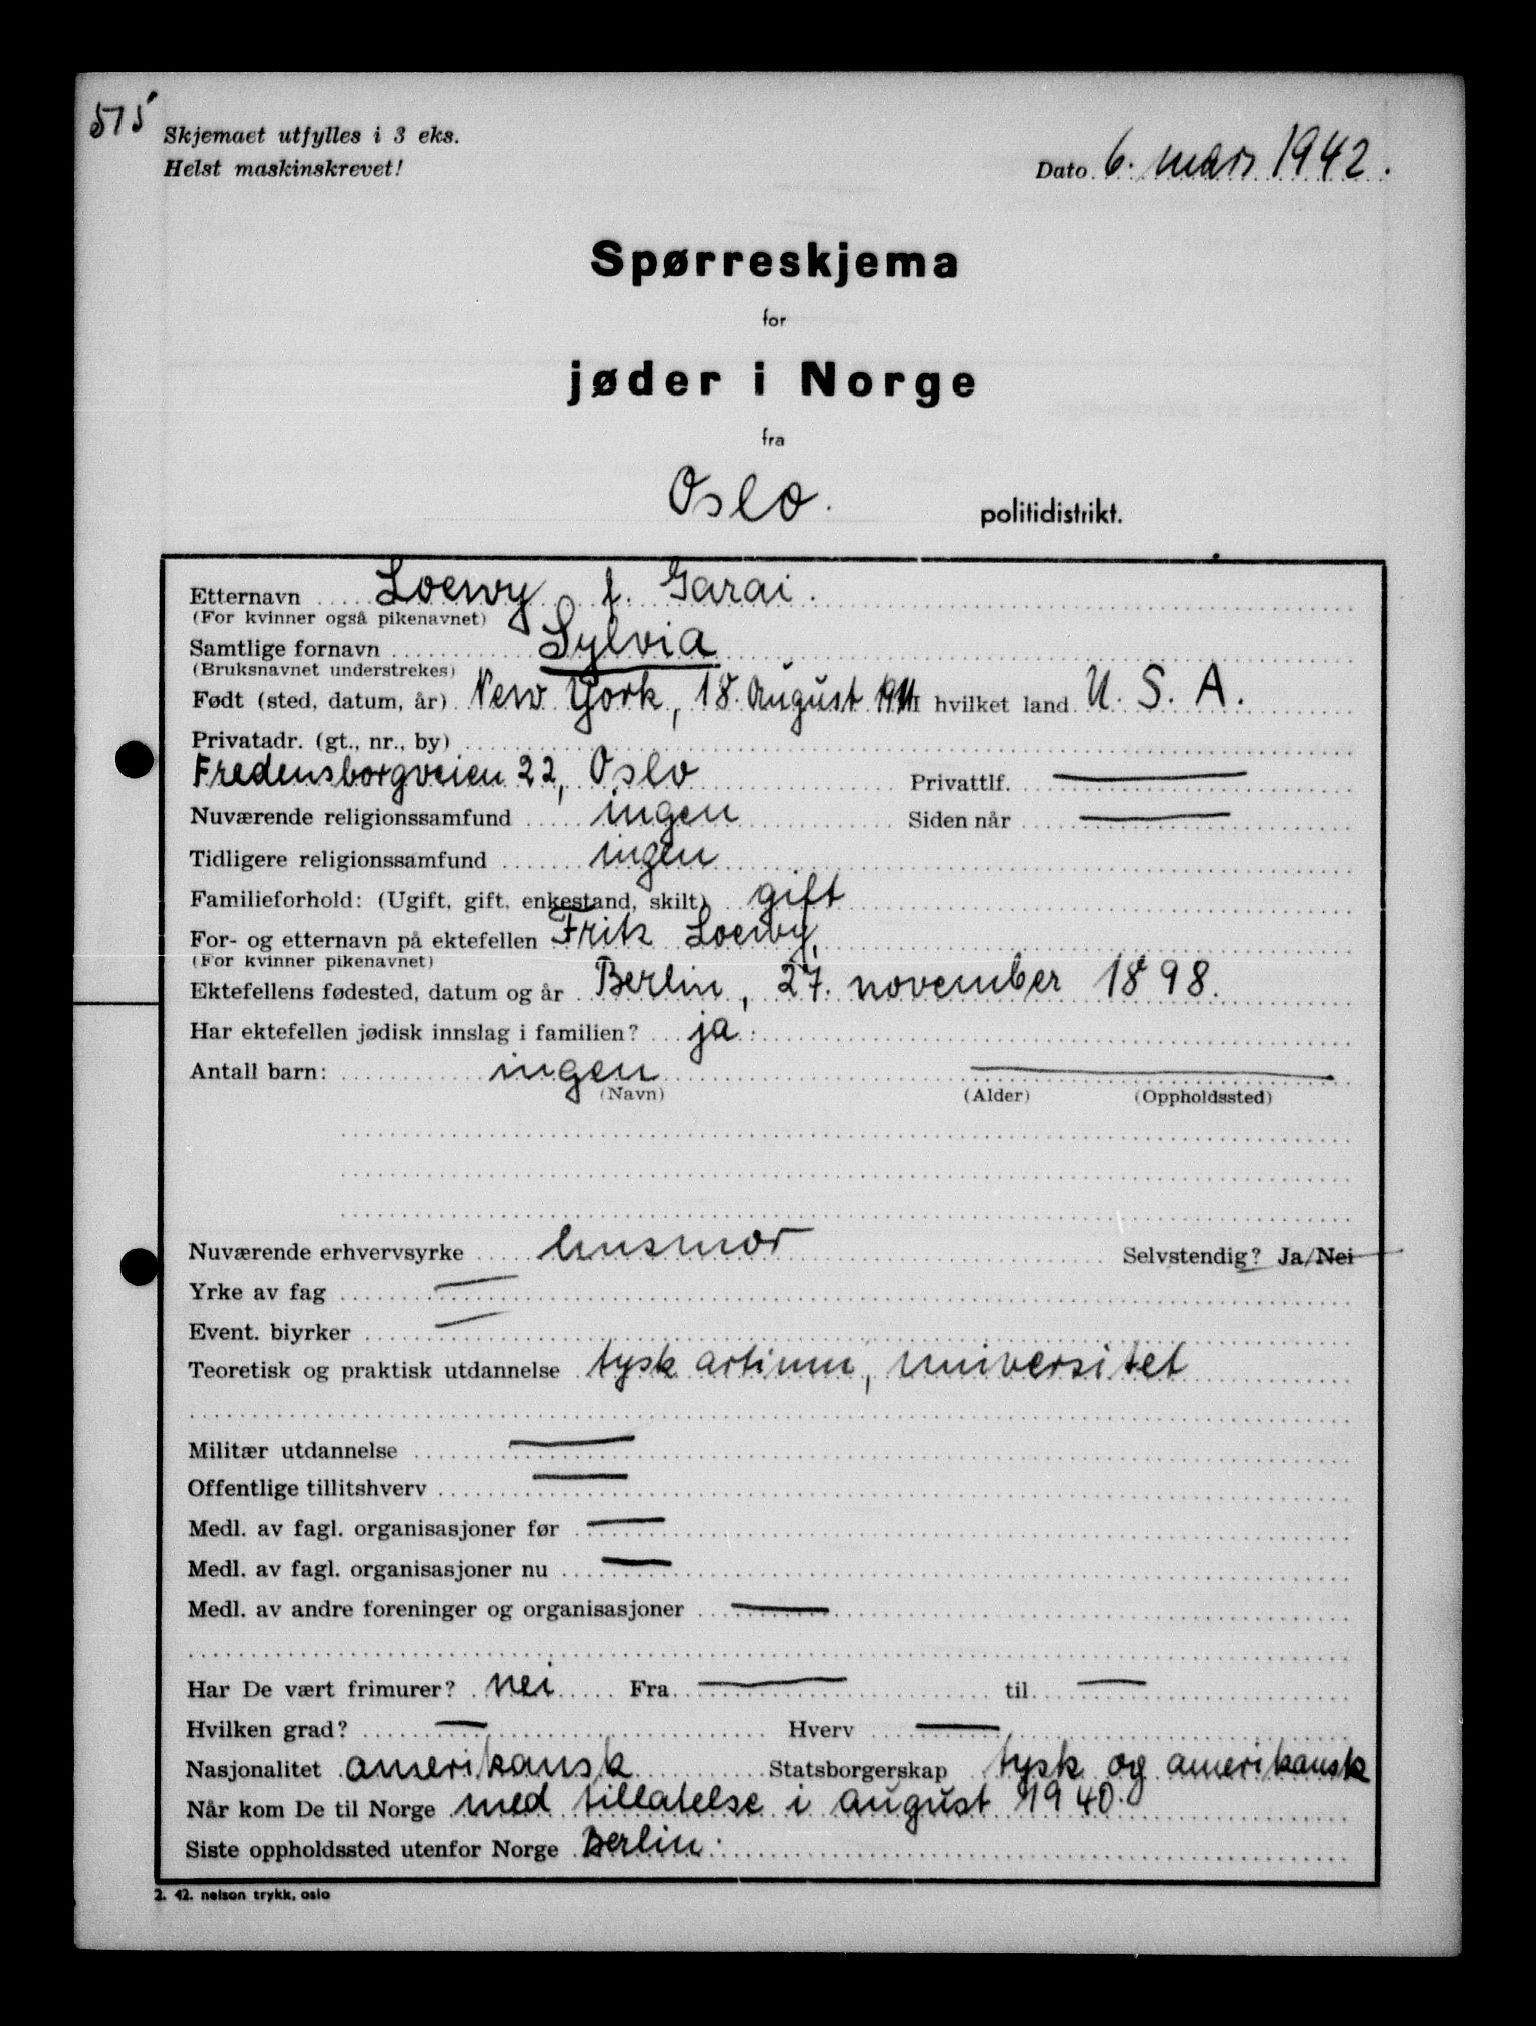 515
Skjemaet utfylles i 3 eks.
Helst maskinskrevet!
Dato 6. mars 1942.
Spørreskjema
for
jøder i Norge
fra
Oslo. politidistrikt.
Etternavn Loewy f. Garai.
(For kvinner også pikenavnet)
Samtlige fornavn Sylvia
(Bruksnavnet understrekes)
Født (sted, datum, år) New York, 18. August 1911 I hvilket land U. S. A.
Privatadr. (gt., nr., by)
Fredensborgveien 22, Oslo Privattlf. —
Nuværende religionssamfund ingen Siden når —
Tidligere religionssamfund ingen
Familieforhold: (Ugift, gift, enkestand, skilt) gift
For- og etternavn på ektefellen Fritz Loewy,
(For kvinner pikenavnet)
Ektefellens fødested, datum og år Berlin, 27. november 1898.
Har ektefellen jødisk innslag i familien? ja.
Antall barn: ingen —
(Navn) (Alder) (Oppholdssted)
Nuværende erhvervsyrke husmor Selvstendig? Ja/Nei
Yrke av fag —
Event. biyrker —
Teoretisk og praktisk utdannelse tysk artium, universitet
Militær utdannelse —
Offentlige tillitshverv —
Medl. av fagl. organisasjoner før —
Medl. av fagl. organisasjoner nu —
Medl. av andre foreninger og organisasjoner —
Har De vært frimurer? nei Fra — til —
Hvilken grad? — Hverv —
Nasjonalitet amerikansk Statsborgerskap tysk og amerikansk
Når kom De til Norge med tillatelse i august 1940.
Siste oppholdssted utenfor Norge Berlin.
2. 42. nelson trykk, oslo